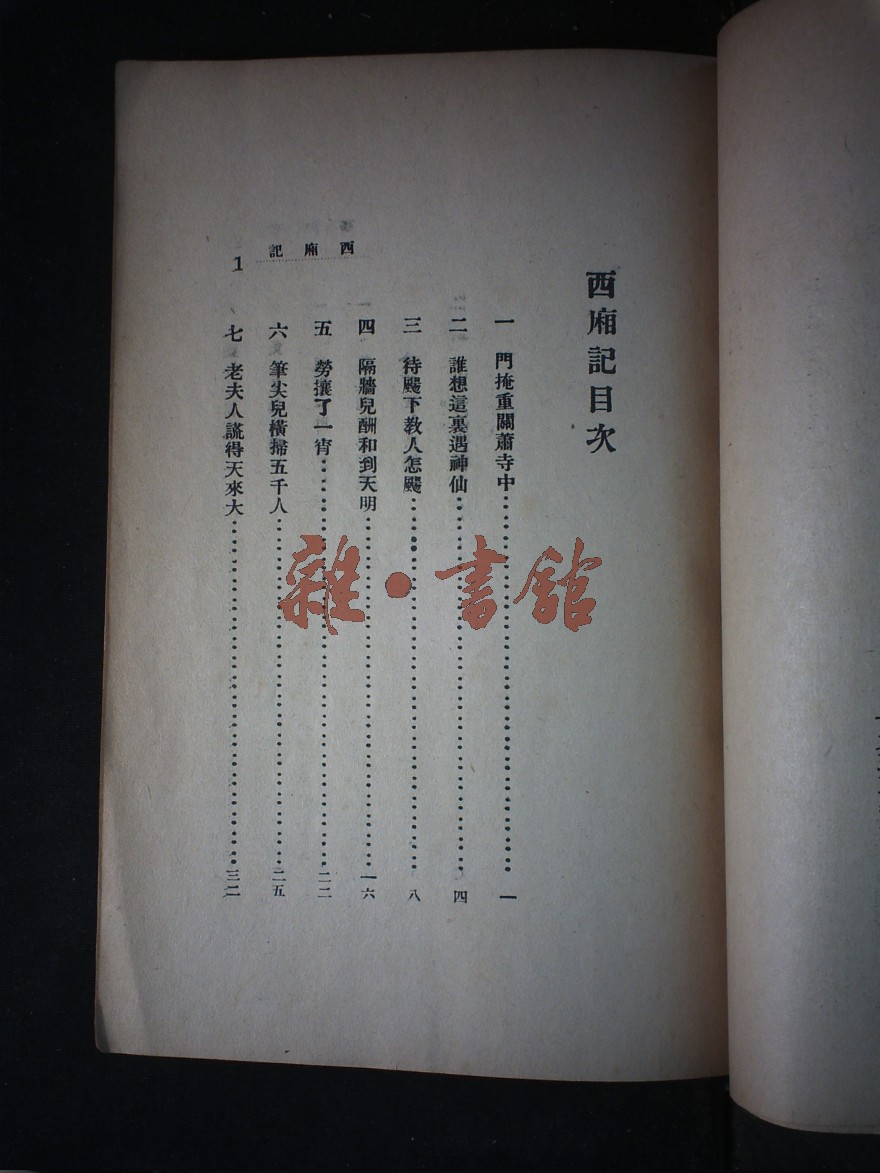 西廂記目次
一 門掩重關蕭寺中……一
二 誰想這裏遇神仙……四
三 待颺下敎人怎颺……八
四 隔牆兒酬和到天明……一六
五 勞攘了一宵……二二
六 筆尖兒橫掃五千人……二五
七 老夫人謊得天來大……三二
西廂記
1
雜·書館